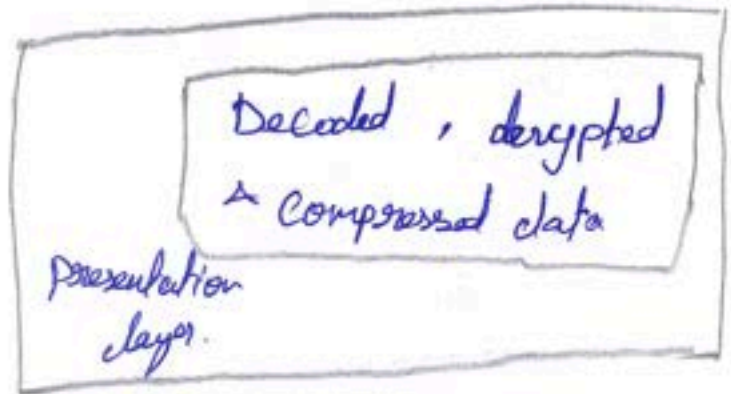 Decoded , derypted
& Compressed data
Presentation
layer.